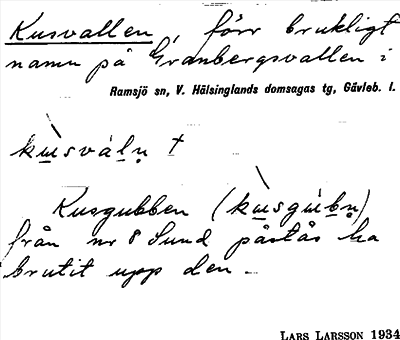 Kusvallen, förr brukligt
namn på Granbergsvallen i
Ramsjö sn, V. Hälsinglands domsagas tg, Gävleb. l.
kùsváln̥ †
Kusgubben (kùsgub̀n̥)
från nr 8 Sund påstås ha
brutit upp den.
LARS LARSSON 1934